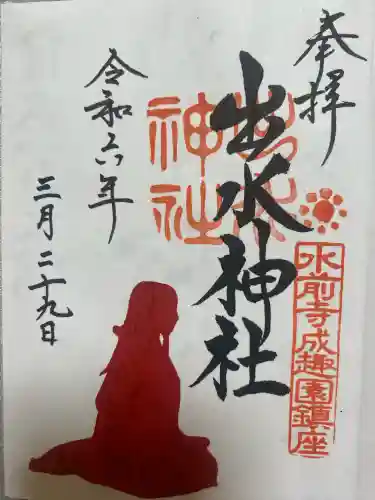 奉拝
水前寺成趣園鎮座
出水神社
出水神社
令和六年
三月二十九日